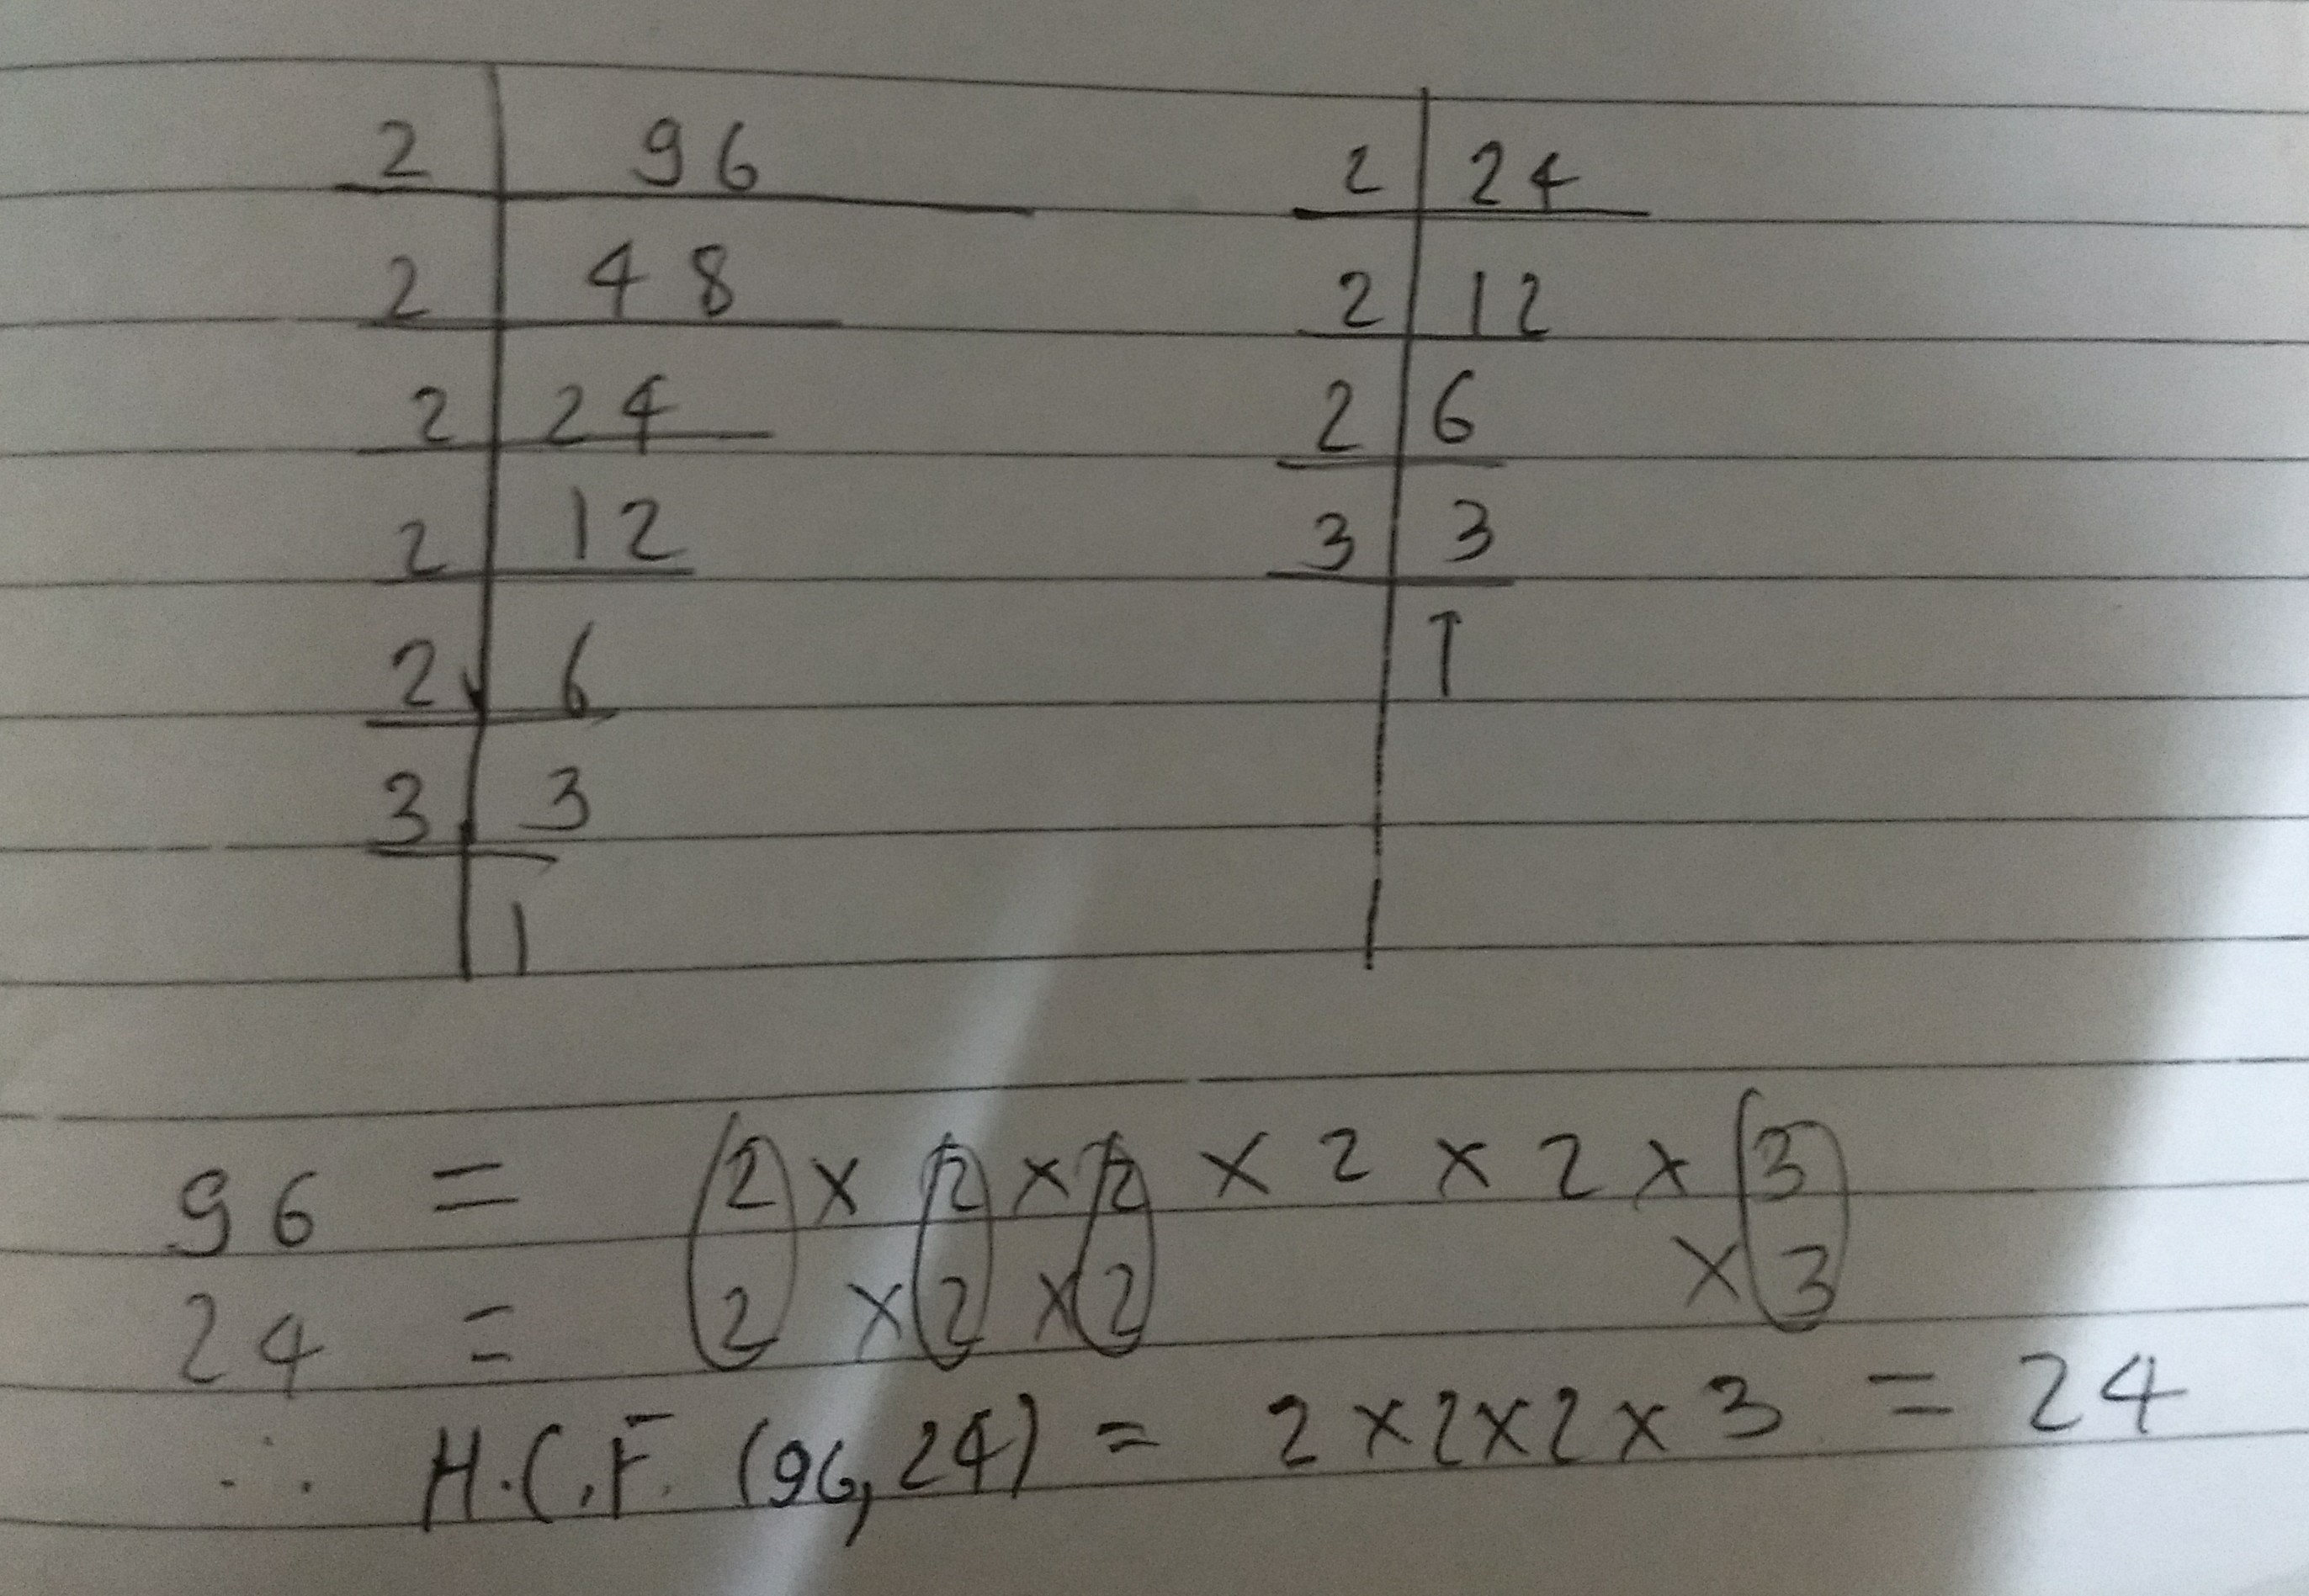 2 | 96
2 | 48
2 | 24
2 | 12
2 | 6
3 | 3
1
2 | 24
2 | 12
2 | 6
3 | 3
1
96 = 2 × 2 × 2 × 2 × 2 × 3
24 = 2 × 2 × 2 × 3
∴ H.C.F. (96, 24) = 2 × 2 × 2 × 3 = 24